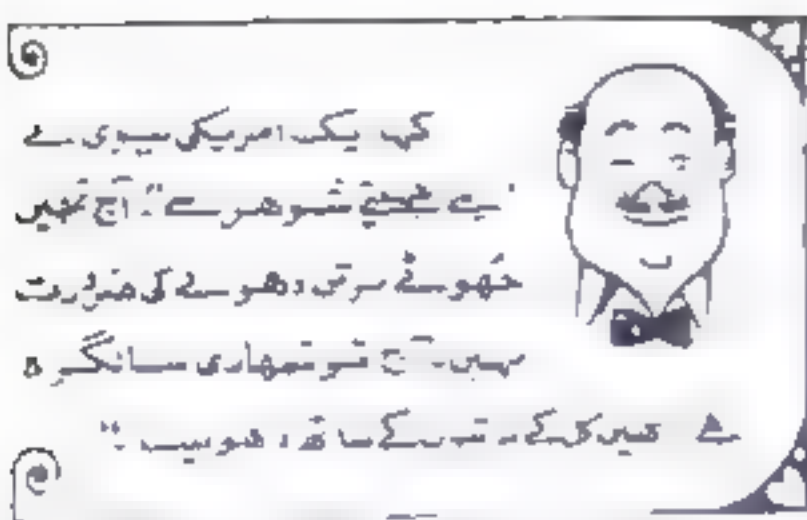 کہا ایک امریکی بیوی نے
اپنے شوہر سے "آج تمہیں
جھوٹے برتن دھونے کی ضرورت
نہیں۔ آج تو تمہاری سالگرہ
ہے کے ساتھ دھو